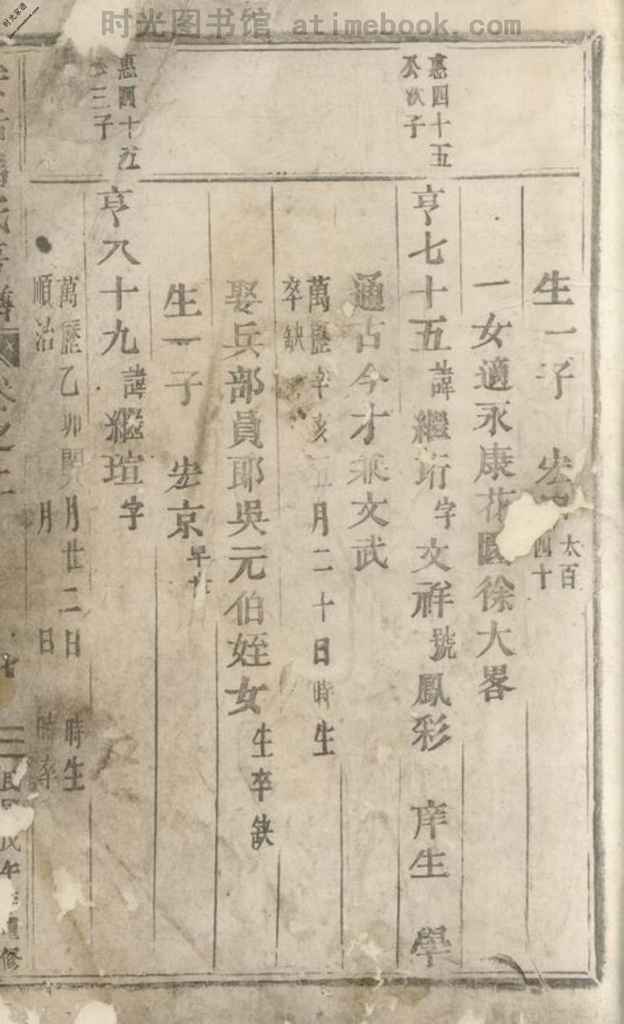 时光图书馆 atimebook.com
时光家谱
生一子 宏 太百四十
一女適永康花園徐大畧
惠四十五
次子
亨七十五諱繼珩字文祥號鳳彩 庠生 學
通古今才兼文武
萬歷辛亥五月二十日時生
卒缺
娶兵部員郎吳元伯姪女生卒缺
生一子 宏京早亡
惠四十五
三子
亨八十九諱繼瑄字
萬歷乙卯閏月廿二日 時生
順治 月 日 時卒
戊午 重修